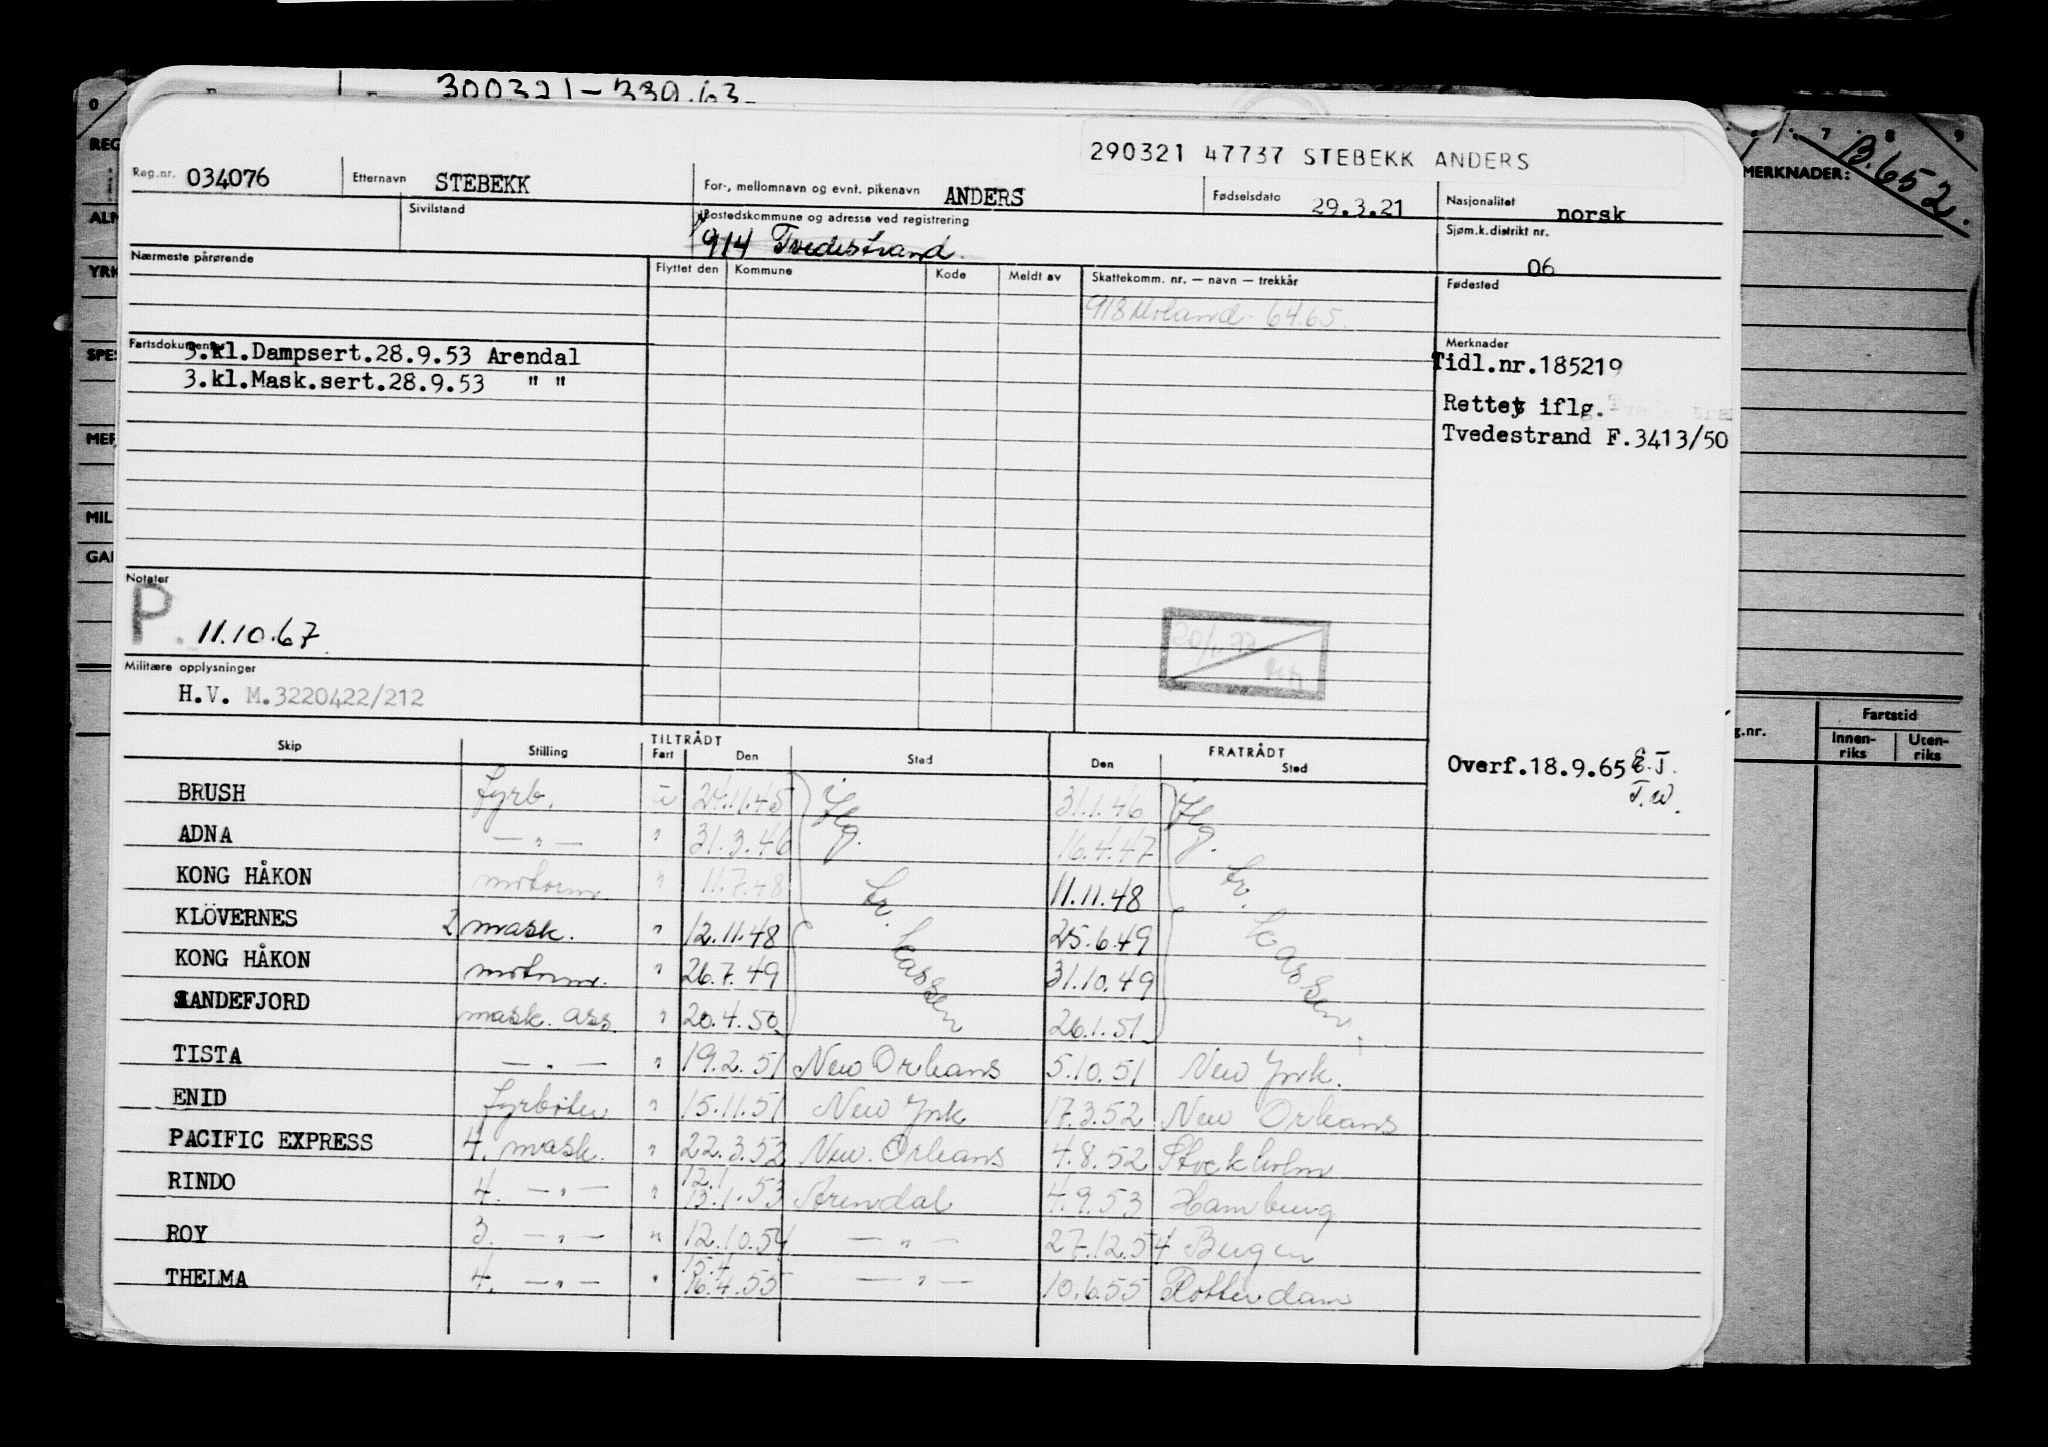 300321-339.63
0
7 8 9
B.652.
MERKNADER:
REG
ALM
YRK
SPES
MER
MIL
GAR
290321 47737 STEBEKK ANDERS
Reg.nr. 034076 Etternavn STEBEKK For-, mellomnavn og evnt. pikenavn ANDERS Fødselsdato 29.3.21 Nasjonalitet norsk
Sivilstand Bostedskommune og adresse ved registrering Sjøm.k.distrikt nr.
914 Tvedestrand. 06
Nærmeste pårørende Flyttet den Kommune Kode Meldt av Skattekomm. nr. — navn — trekkår Fødested
918 Moland - 64.65.
Fartsdokumenter Merknader
3.kl.Dampsert.28.9.53 Arendal Tidl.nr.185219
3.kl.Mask.sert.28.9.53 " "
Rettet iflg.
Tvedestrand F.3413/50
Notater
P. 11.10.67
Militære opplysninger
H.V. M.3220422/212
Fartstid
g.nr. Innen-riks Uten-riks
TILTRÅDT FRATRÅDT
Skip Stilling Fart Den Sted Den Sted
Overf.18.9.65 E.J.
T.W.
BRUSH fyrb. u 24.11.45 iflg. 31.1.46 iflg.
ADNA — " — " 31.3.46 16.4.47
KONG HÅKON motorm. " 11.7.48 11.11.48
KLÖVERNES 2 mask. " 12.11.48 25.6.49
KONG HÅKON motorm. " 26.7.49 31.10.49
SANDEFJORD mask. ass. " 20.4.50 26.1.51
TISTA — " — " 19.2.51 New Orleans 5.10.51 New York.
ENID fyrbøter " 15.11.51 New York 17.3.52 New Orleans
PACIFIC EXPRESS 4. mask. " 22.3.52 New. Orleans 4.8.52 Stockholm
12.1
RINDO 4. — " — " 13.1.53 Arendal 4.9.53 Hamburg
ROY 3. — " — " 12.10.54 — " — 27.12.54 Bergen
15.4
THELMA 4. — " — " 16.4.55 — " — 10.6.55 Rotterdam